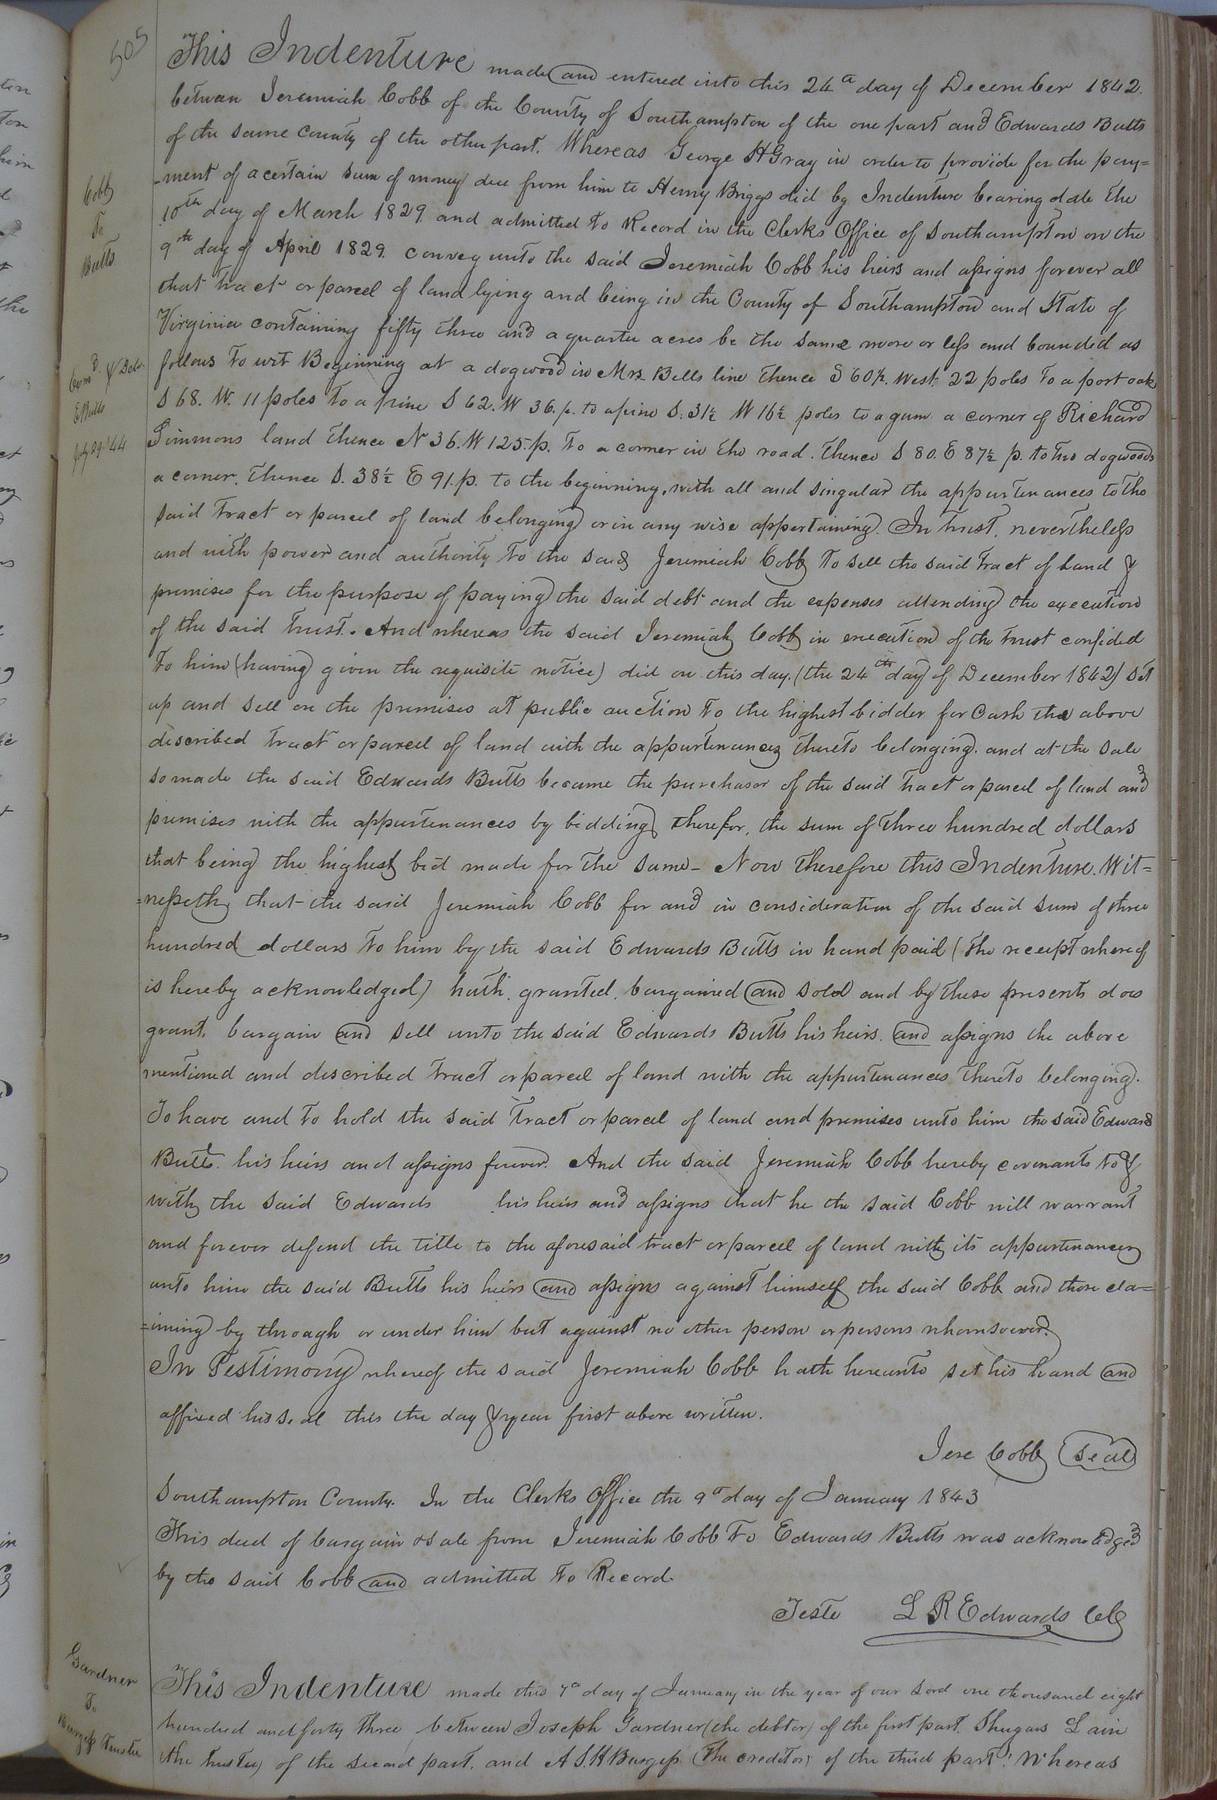 505
This Indenture made and entered into this 24th day of December 1842.
between Jeremiah Cobb of the County of Southampton of the one part and Edwards Butts
of the same County of the other part. Whereas George H Gray in order to provide for the pay=
-ment of a certain sum of money due from him to Henry Briggs did by Indenture bearing date the
10th day of March 1829 and admitted to Record in the Clerks Office of Southampton on the
9th day of April 1829. convey unto the said Jeremiah Cobb his heirs and assigns forever all
that tract or parcel of land lying and being in the County of Southampton and State of
Virginia containing fifty three and a quarter acres be the same more or less and bounded as
follows to wit Beginning at a dogwood in Mrs Bells line thence S 60½ West 22 poles to a post oak
S 68. W. 11 poles to a pine S 62. W 36. p. to a pine S. 31½ W 16½ poles to a gum a corner of Richard
Simmons land thence N 36. W 125. p. to a corner in the road. thence S 80. E 87½ p. to two dogwoods
a corner. thence S. 38½ E 91. p. to the beginning, with all and singular the appurtenances to the
said tract or parcel of land belonging or in any wise appertaining. In trust, nevertheless
and with power and authority to the said Jeremiah Cobb to sell the said tract of Land &
premises for the purpose of paying the said debt and the expenses attending the execution
of the said trust. And whereas the said Jeremiah Cobb in execution of the trust confided
to him (having given the requisite notice) did on this day. (the 24th day of December 1842) set
up and sell on the premises at public auction to the highest bidder for Cash the above
described tract or parcel of land with the appurtenances thereto belonging. and at the sale
so made the said Edwards Butts became the purchaser of the said tract or parcel of land and
premises with the appurtenances by bidding therefor, the sum of three hundred dollars
that being the highest bid made for the same - Now therefore this Indenture. Wit=
=nesseth, that the said Jeremiah Cobb for and in consideration of the said sum of three
hundred dollars to him by the said Edwards Butts in hand paid (the receipt whereof
is hereby acknowledged) hath. granted, bargained and sold and by these presents does
grant, bargain and sell unto the said Edwards Butts his heirs. and assigns the above
mentioned and described tract or parcel of land with the appurtenances thereto belonging.
To have and to hold the said tract or parcel of land and premises unto him the said Edwards
Butts. his heirs and assigns forever. And the said Jeremiah Cobb hereby covenants to &
with the said Edwards his heirs and assigns that he the said Cobb will warrant
and forever defend the title to the aforesaid tract or parcel of land with its appurtenances
unto him the said Butts his heirs and assigns against himself the said Cobb and those cla=
=iming by through or under him but against no other person or persons whomsoever.
In Testimony whereof the said Jeremiah Cobb hath hereunto set his hand and
affixed his seal this the day & year first above written.
Jere Cobb Seal
Southampton County. In the Clerks Office the 9th day of January 1843
This deed of bargain & sale from Jeremiah Cobb to Edwards Butts was acknowledged
by the said Cobb and admitted to Record.
Teste L R Edwards CC
This Indenture made this 7th day of January in the year of our Lord one thousand eight
hundred and forty three between Joseph Gardner (the debtor) of the first part. Shugars Lain
(the trustee) of the second part. and A.S.H Burgess (the creditor) of the third part. Whereas
Cobb
To
Butts
E Butts
44
Gardner
To
Burgess Trustee